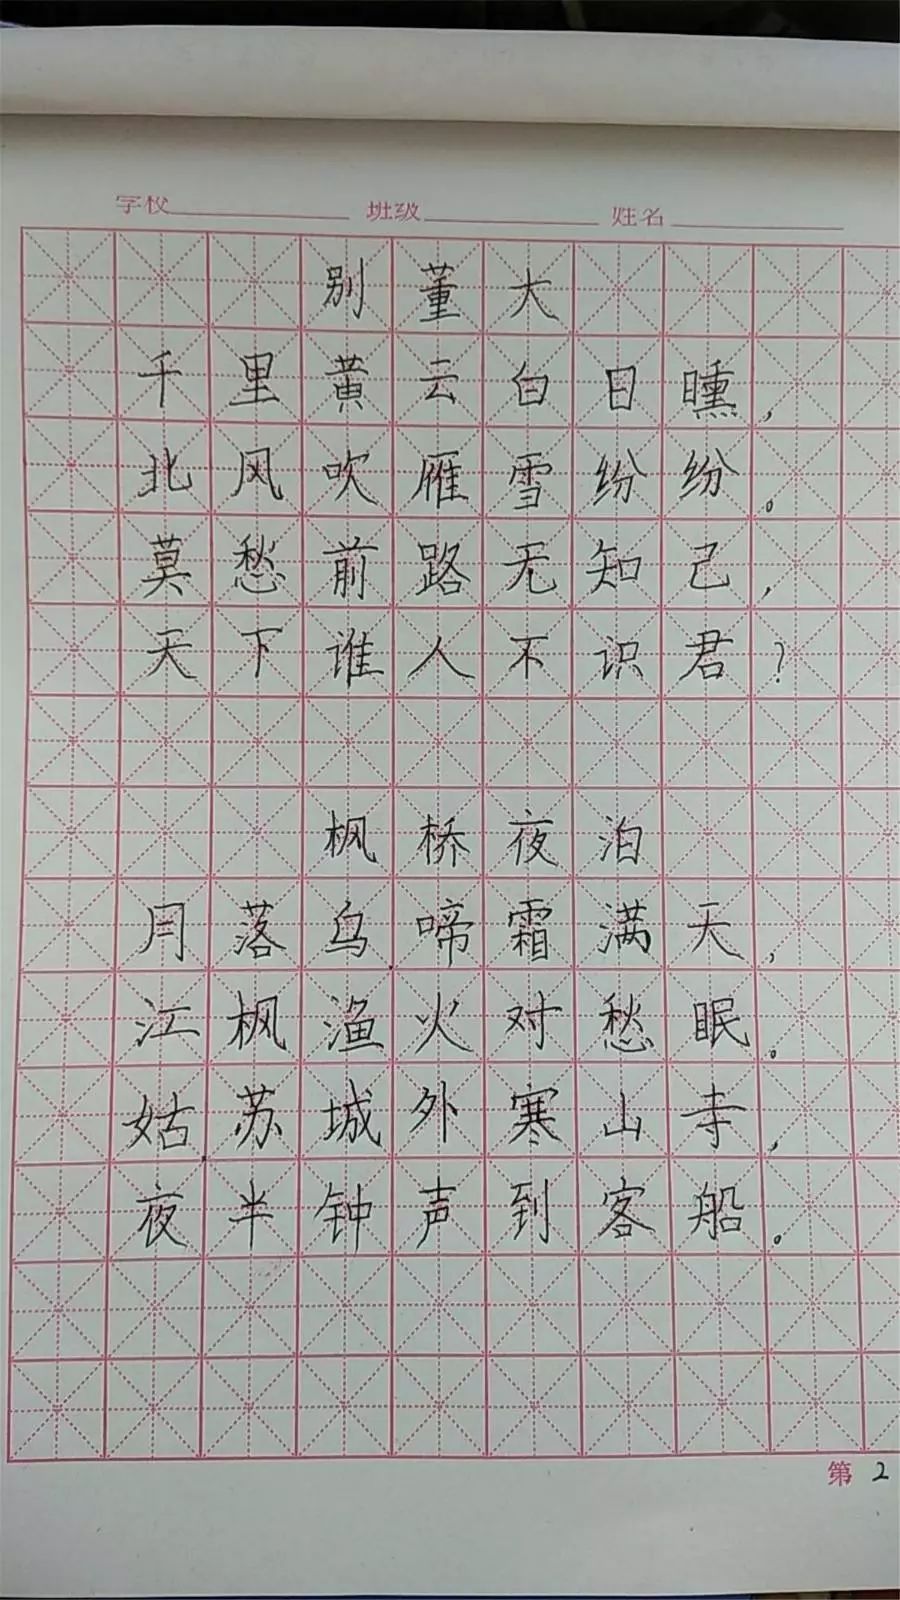 学校 班级 姓名
别董大
千里黄云白日曛，
北风吹雁雪纷纷。
莫愁前路无知己，
天下谁人不识君？
枫桥夜泊
月落乌啼霜满天，
江枫渔火对愁眠。
姑苏城外寒山寺，
夜半钟声到客船。
第 2